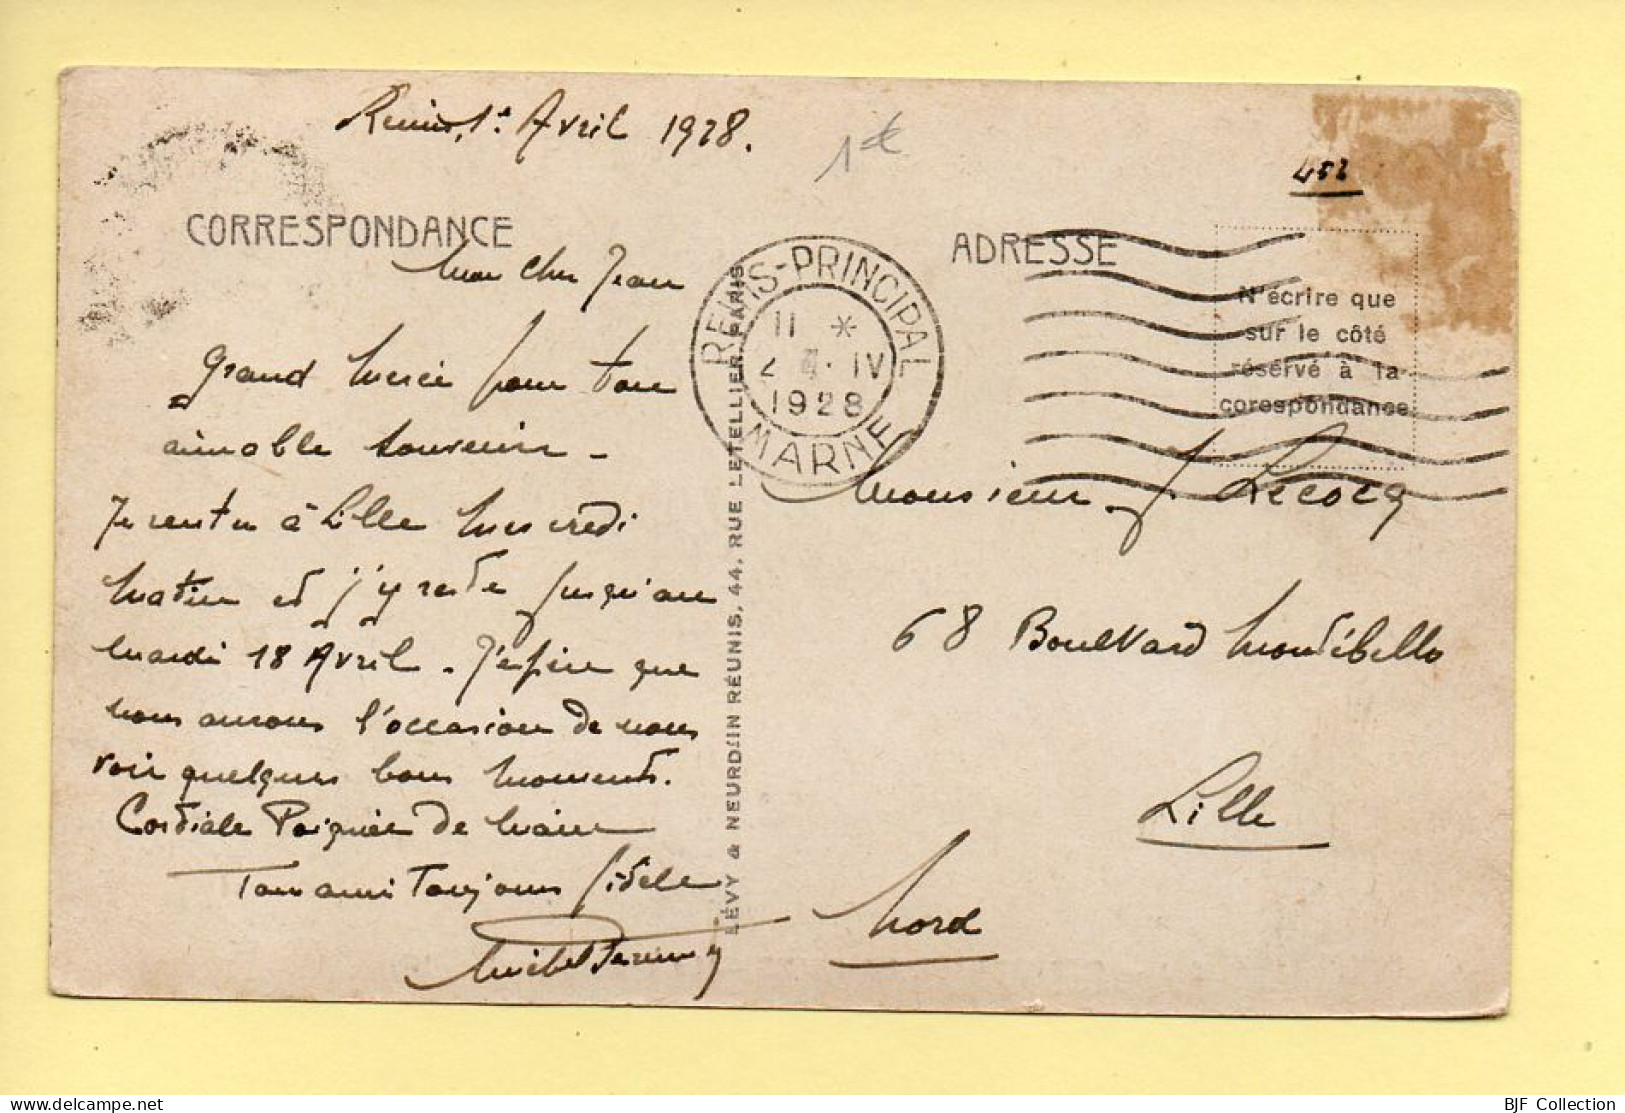 Reims, 1er Avril 1928.
1€
452
CORRESPONDANCE
ADRESSE
Mon cher Jean
Grand merci pour ton
aimable souvenir -
Je rentre à Lille Mercredi
matin et j'y reste jusqu'au
mardi 18 Avril - J'espère que
nous aurons l'occasion de nous
voir quelques bons moments.
Cordiale Poignée de main
Ton ami Toujours fidèle
Michel
REIMS-PRINCIPAL
11 *
2 IV
1928
MARNE
LÉVY & NEURDEIN RÉUNIS, 44, RUE LETELLIER, PARIS
N'écrire que
sur le côté
réservé à la
corespondance
Monsieur J Lecocq
68 Boulevard Montébello
Lille
Nord
BJF Collection